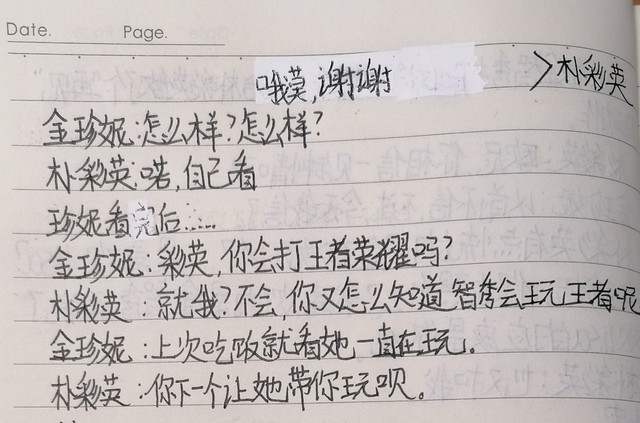 Date. Page.
哦莫,谢谢 >朴彩英
金珍妮:怎么样?怎么样?
朴彩英:喏,自己看
珍妮看完后……
金珍妮:彩英,你会打王者荣耀吗?
朴彩英:就我?不会,你又怎么知道智秀会玩王者呢
金珍妮:上次吃饭就看她一直在玩。
朴彩英:你下一个让她带你玩呗。